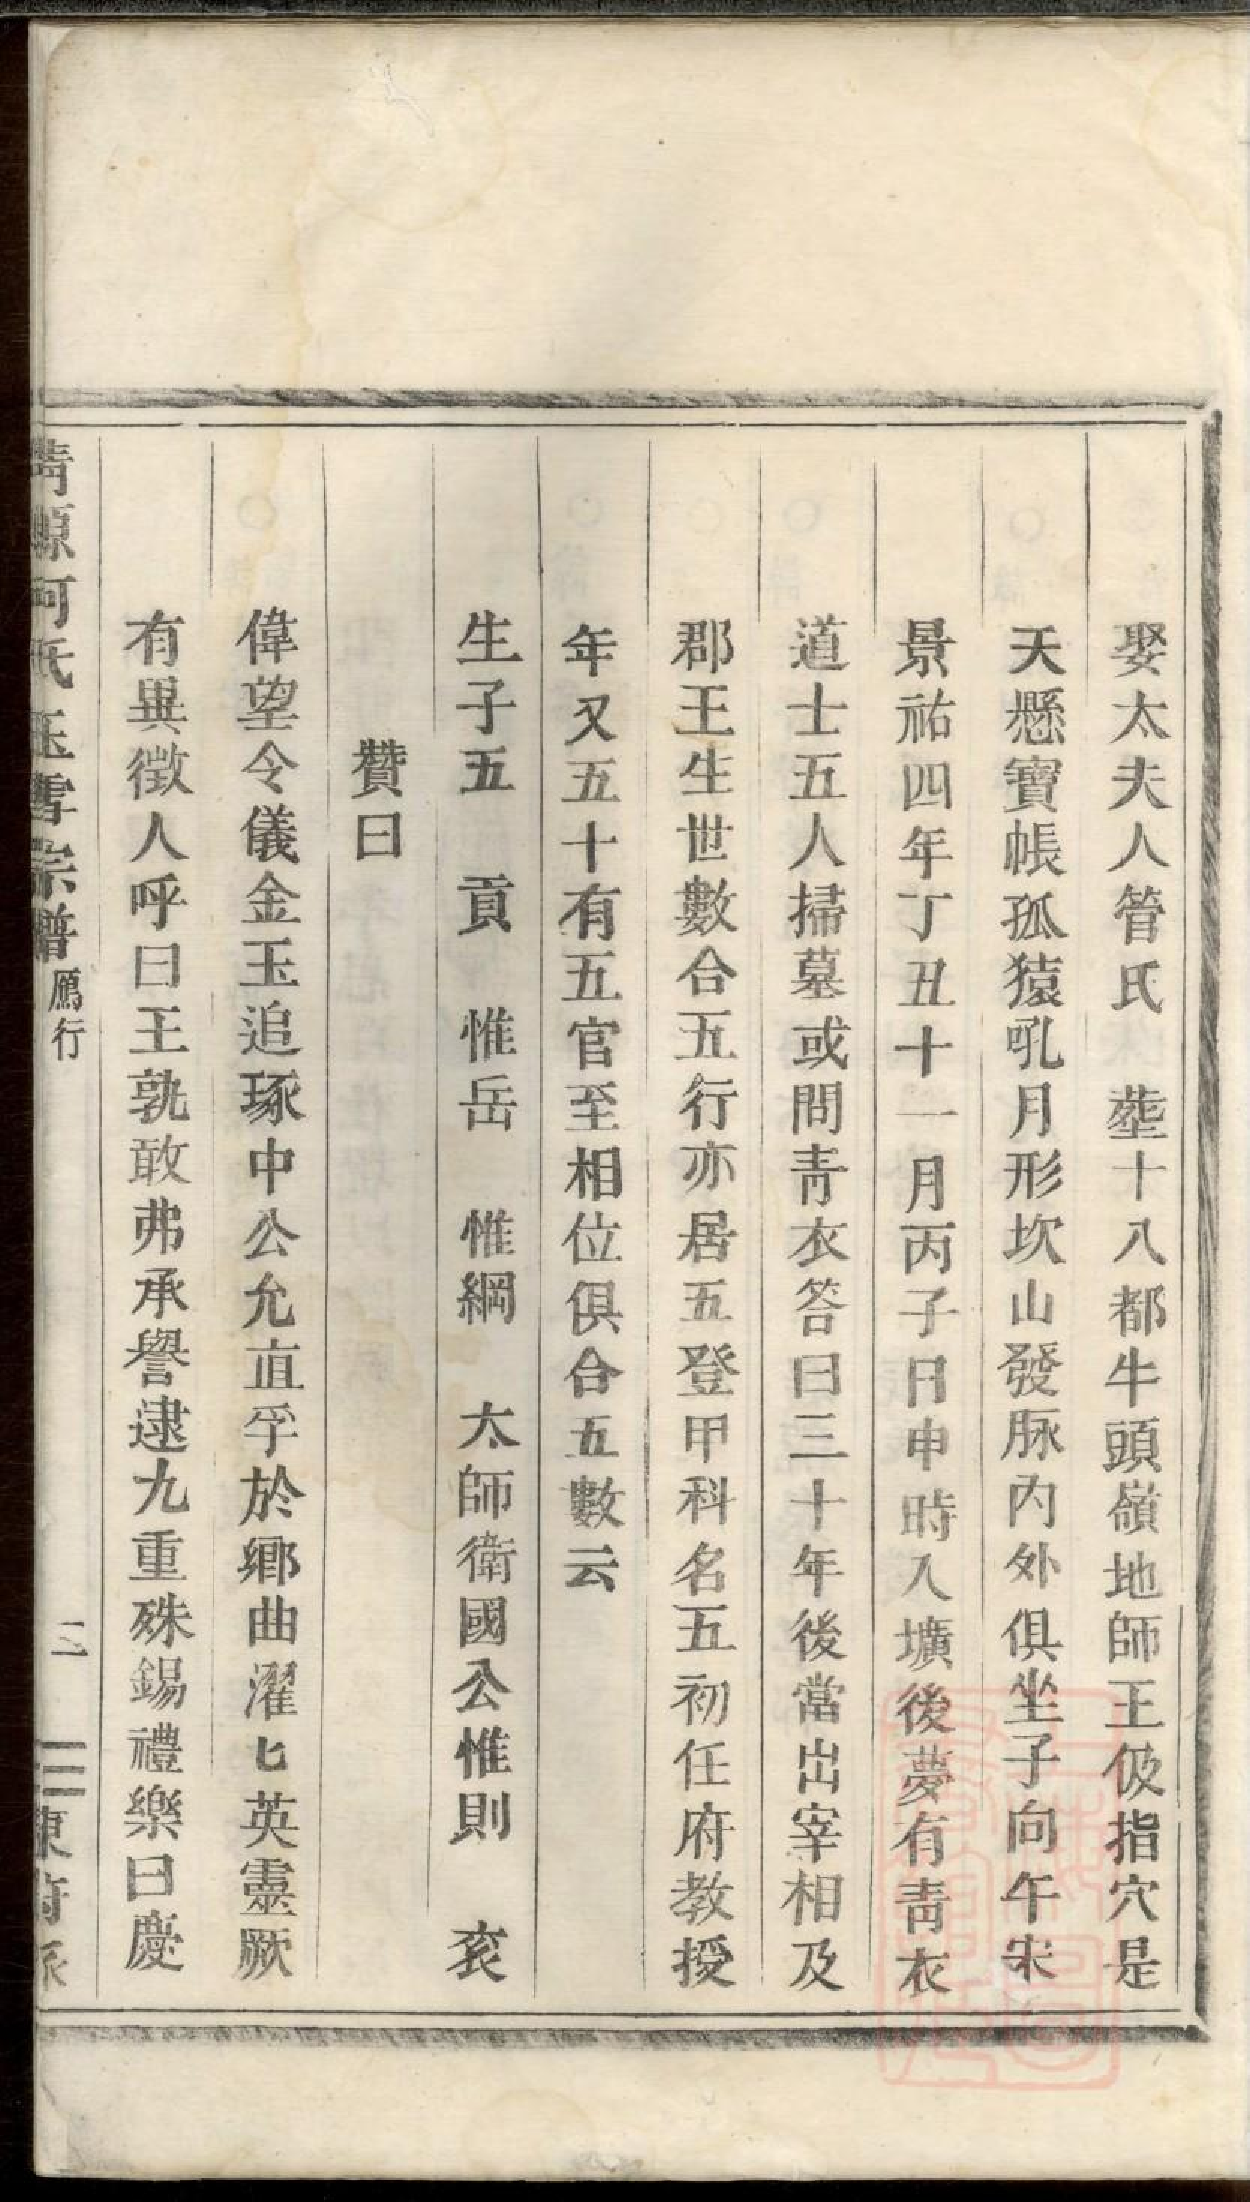 娶太夫人管氏　塟十八都牛頭嶺地師王伋指穴是
天懸寶帳孤猿吼月形坎山發脉內外俱坐子向午宋
景祐四年丁丑十一月丙子日申時入壙後夢有靑衣
道士五人掃墓或問靑衣答曰三十年後當出宰相及
郡王生世數合五行亦居五登甲科名五初任府教授
年又五十有五官至相位俱合五數云
生子五　貢　惟岳　惟綱　太師衛國公惟則　衮
贊曰
偉望令儀金玉追琢中公允直孚於鄉曲濯匕英靈厥
有異徵人呼曰王孰敢弗承譽逮九重殊錫禮樂曰慶
何氏玉雪宗譜 鴈行 二